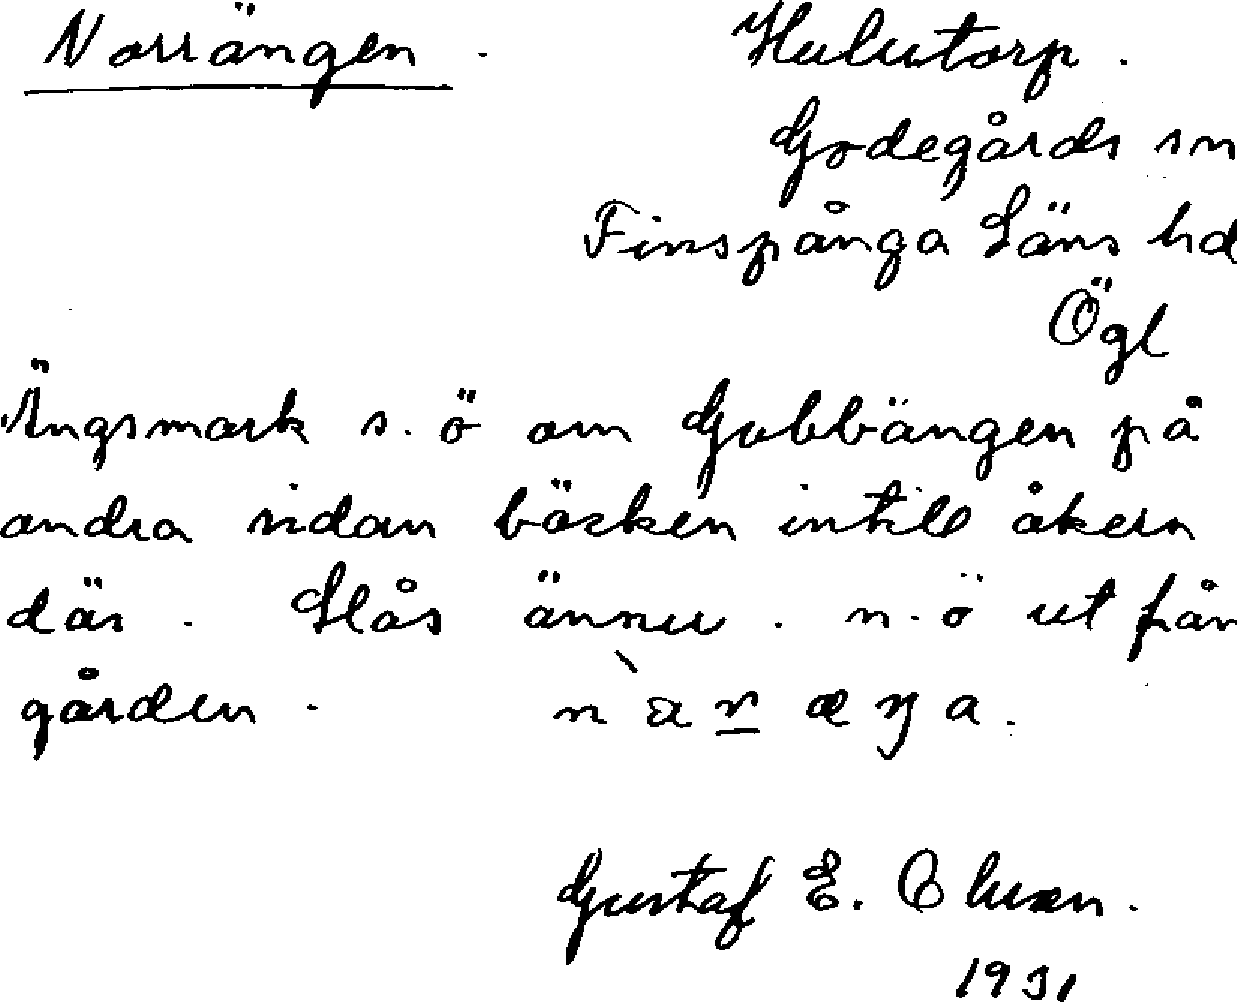 Norrängen. Hulutorp.
Godegårds sn
Finspånga Läns hd
Ögl
Ängsmark s.ö om Gubbängen på
andra sidan bäcken intill åkern
där. Slås ännu. n.ö ut från
gården. n`aræŋa.
Gustaf E. Olsson.
1931